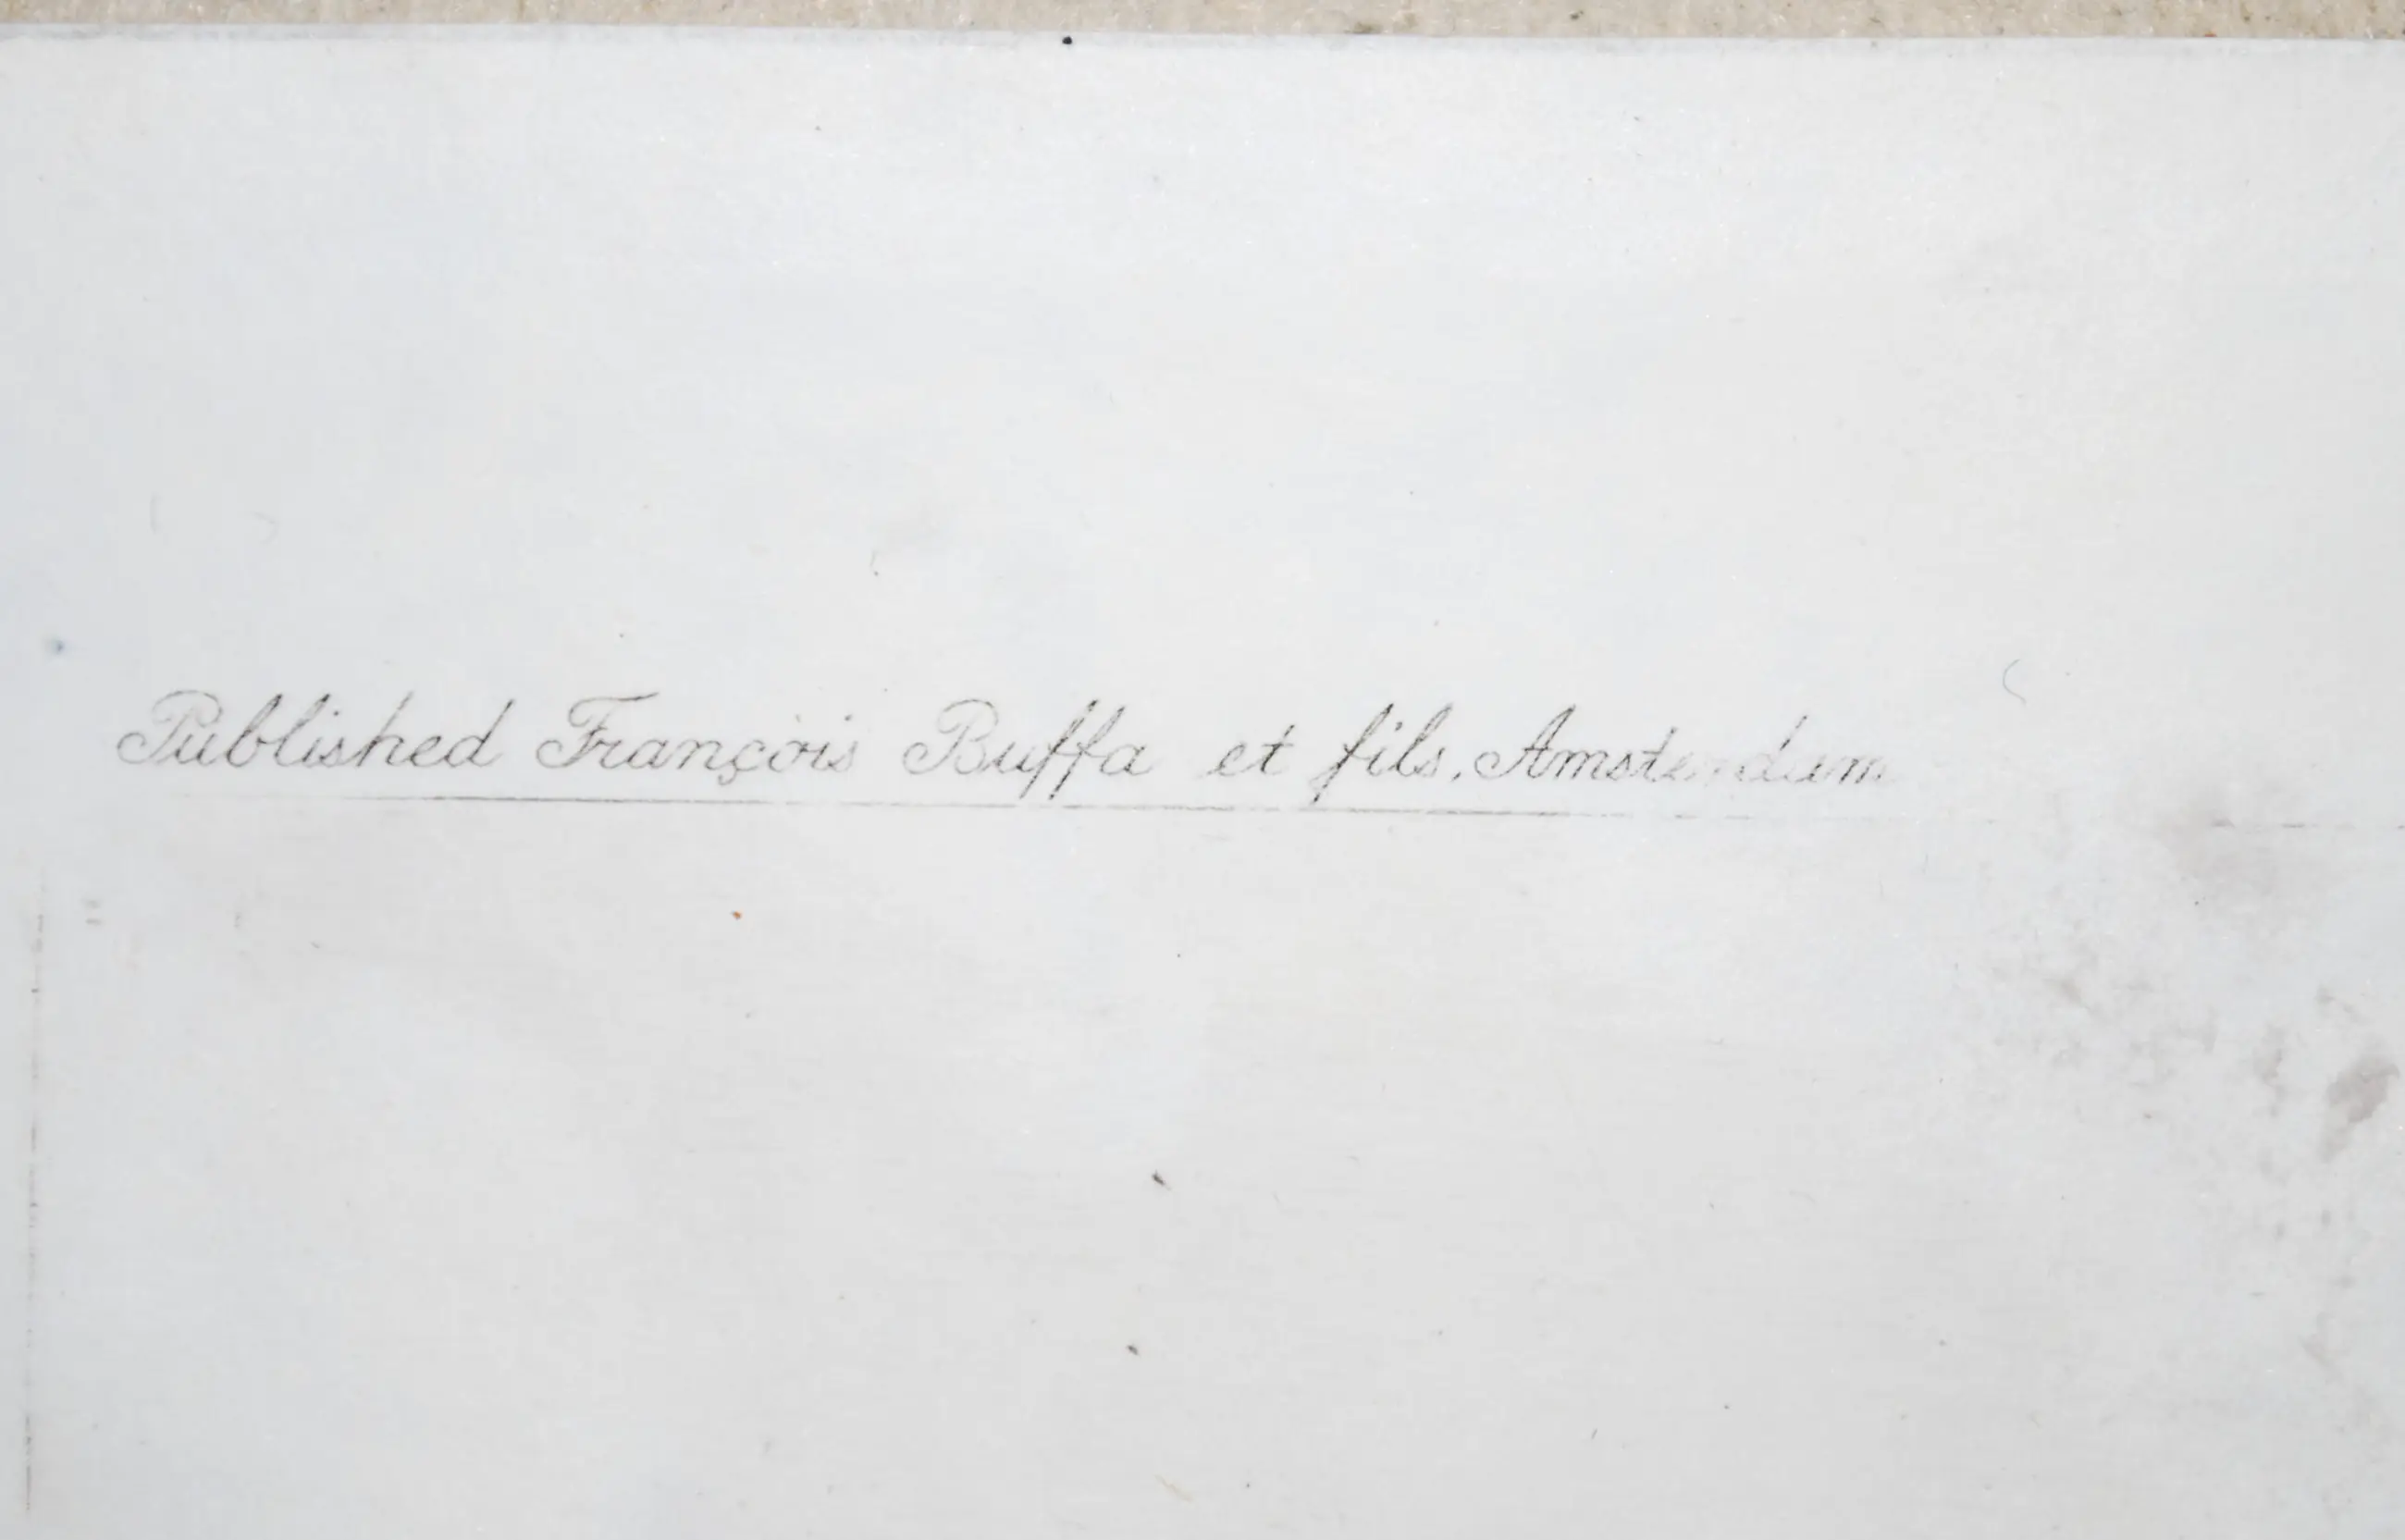 Published François Buffa et fils. Amsterdam